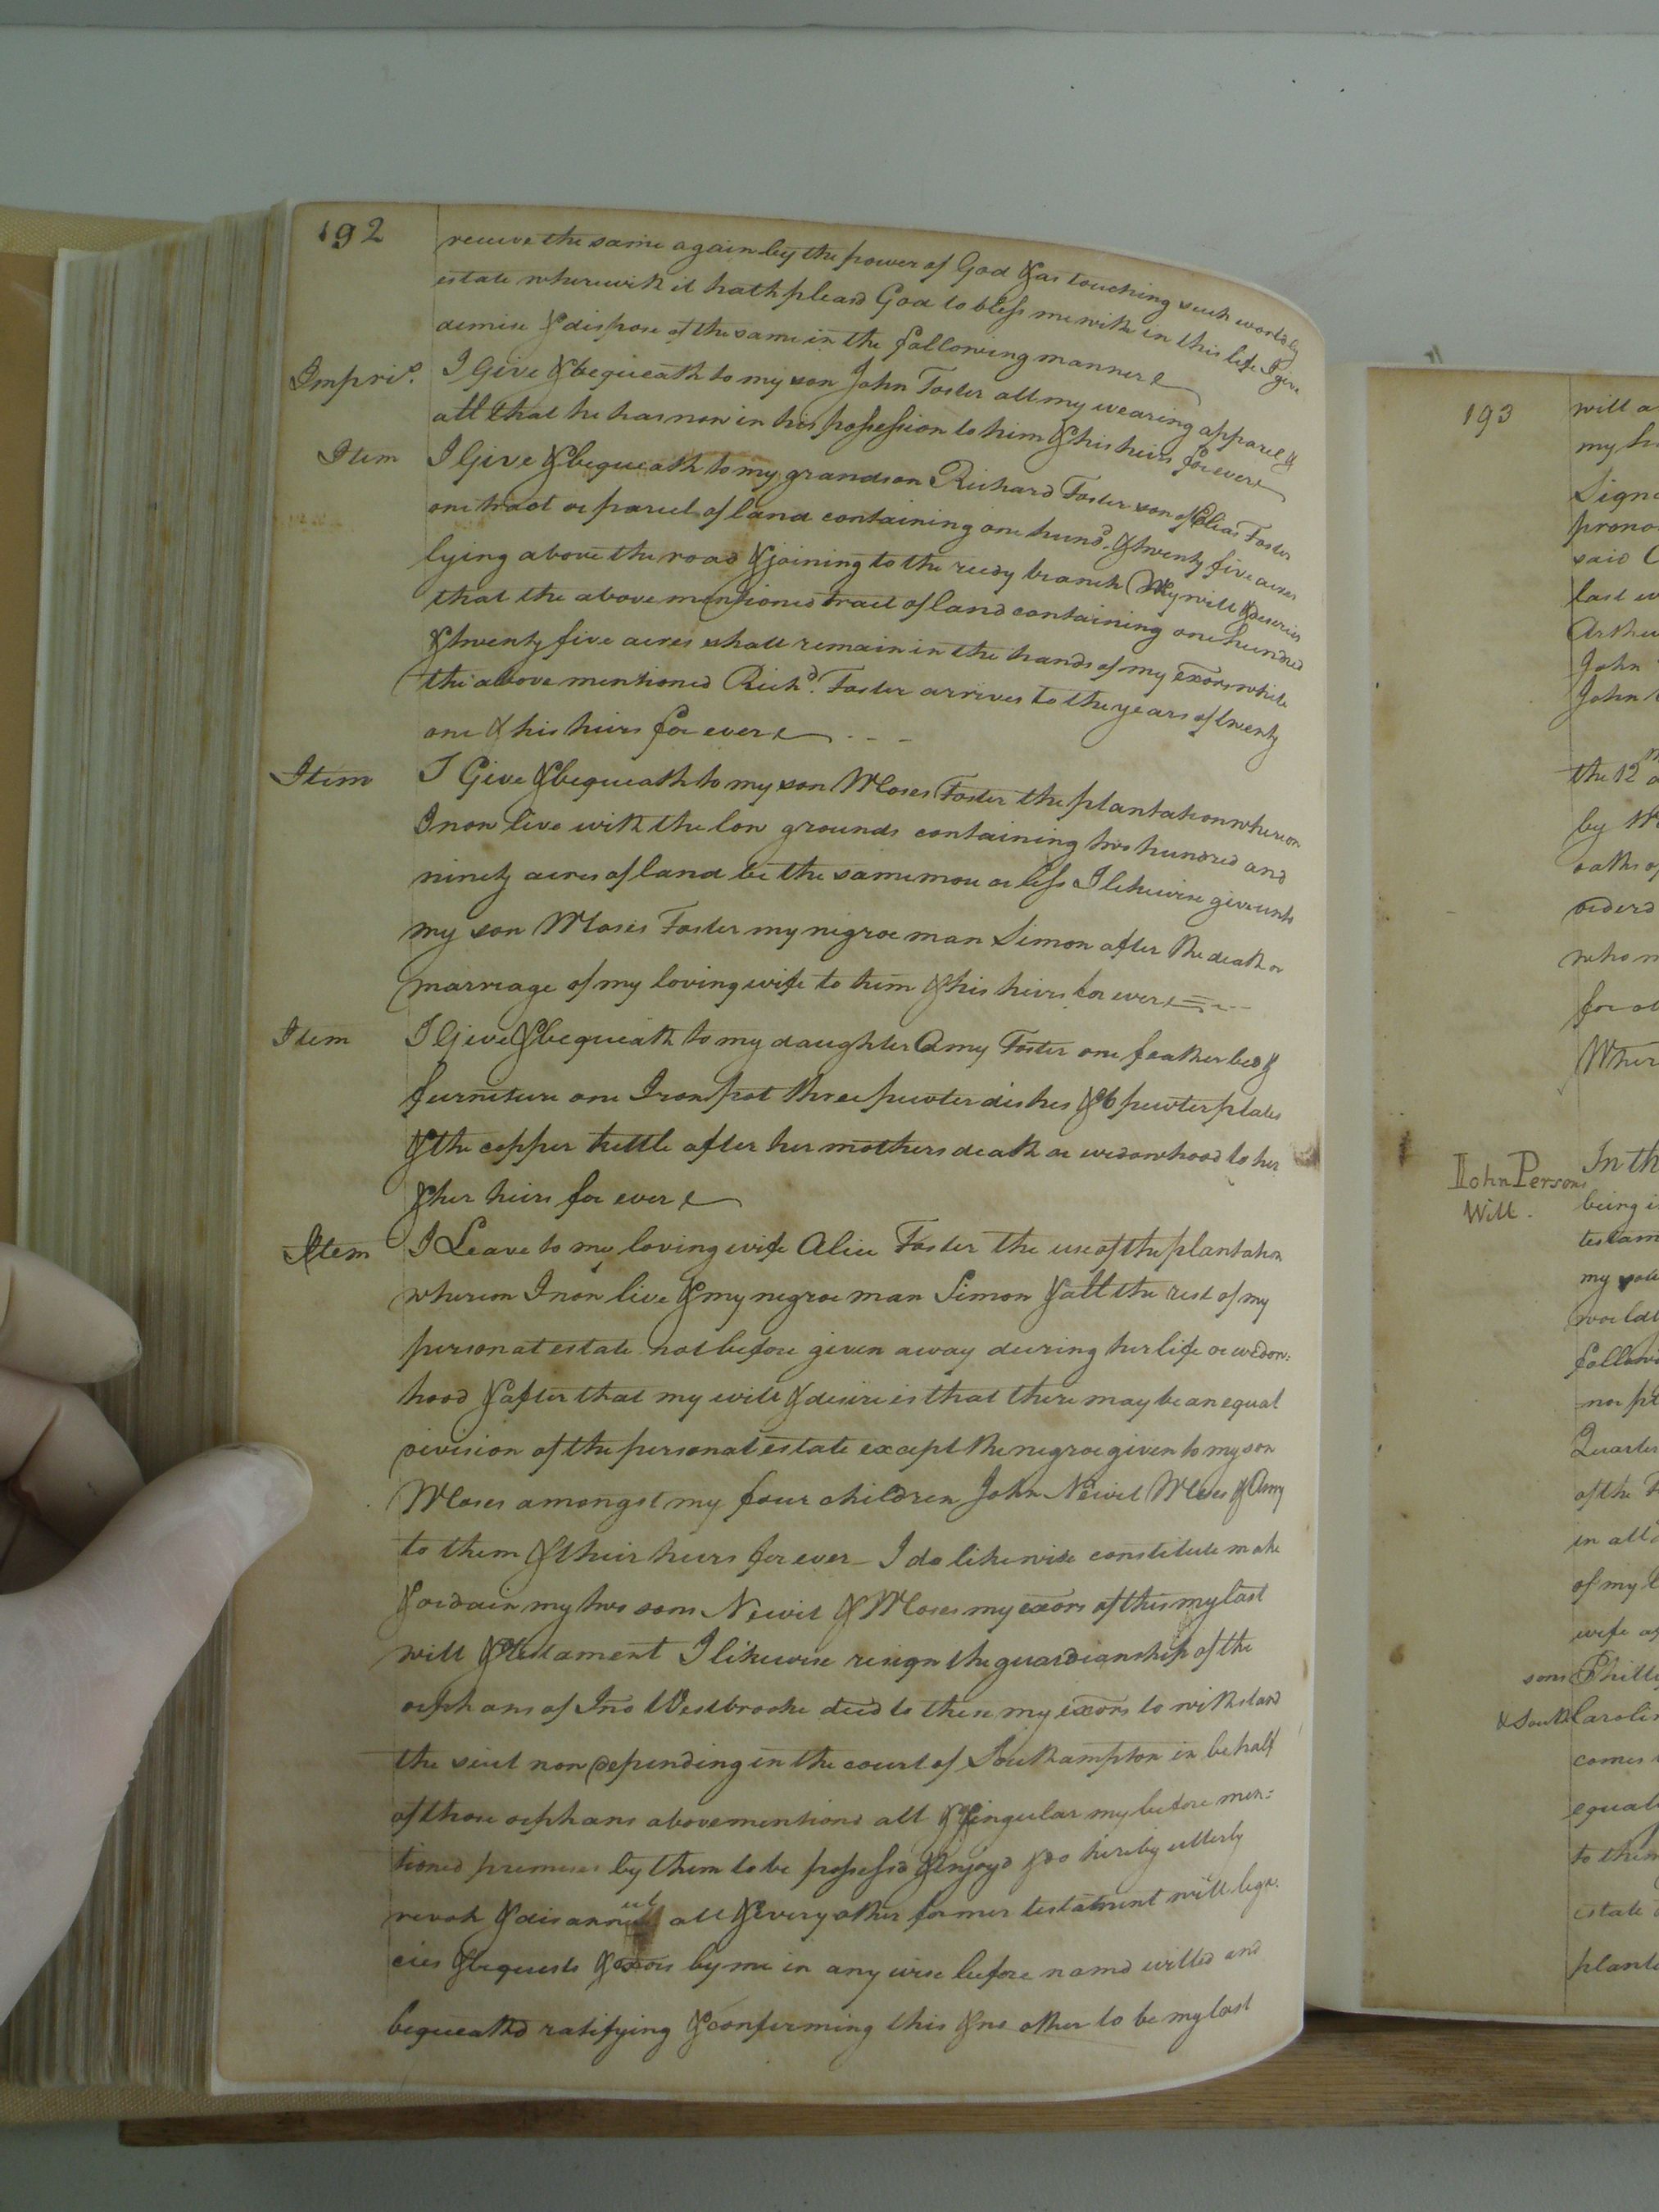 192
receive the same again by the power of God & as touching such worldly
estate wherewith it hath pleasd God to bless me with in this life I give
demise & dispose of the same in the following manner
Impris. I Give & bequeath to my son John Foster all my wearing apparel &
all that he has now in his possession to him & his heirs for ever
Item I Give & bequeath to my grandson Richard Foster son of Elias Foster
one tract or parcel of land containing one hund. & twenty five acres
lying above the road & joining to the reedy branch My will & desire is
that the above mentioned tract of land containing one hundred
& twenty five acres shall remain in the hands of my exors while
the above mentioned Richd. Foster arrives to the years of twenty
one & his heirs for ever
Item I Give & bequeath to my son Moses Foster the plantation whereon
I now live with the low grounds containing two hundred and
ninety acres of land be the same more or less I likewise give unto
my son Moses Foster my negroe man Simon after the death or
marriage of my loving wife to him & his heirs for ever
Item I Give & bequeath to my daughter Amy Foster one feather bed &
furniture one Iron pot three pewter dishes & 6 pewter plates
& the copper kettle after her mothers death or widowhood to her
& her heirs for ever
Item I Leave to my loving wife Alice Foster the use of the plantation
whereon I now live & my negroe man Simon & all the rest of my
personal estate not before given away during her life or widow=
hood & after that my will & desire is that there may be an equal
division of the personal estate except the negroe given to my son
Moses amongst my four children John Newit Moses & Amy
to them & their heirs for ever - I do likewise constitute make
& ordain my two sons Newit & Moses my exors of this my last
will & testament I likewise resign the guardianship of the
orphans of Jno Westbrooke decd to these my exors to withstand
the suit now depending in the court of Southampton in behalf
of those orphans abovementiond all & singular my before men=
tioned premises by them to be possessd & enjoyd & do hereby utterly
revok & disannul all & every other former testament will lega=
cies & bequests & exors by me in any wise before namd willed and
bequeathd ratifying & confirming this & no other to be my last
193
will a
my h
Signe
prono
said
last w
Arthu
John
John
the 12
by
oaths of
orderd
who m
for ob
Wher
John Persons
Will.
In th
being i
testam
my
worldl
follow
nor pl
Quarter
of the
in all
of my
wife
sons Phill
& South Carolin
comes
equal
to them
estate
plant